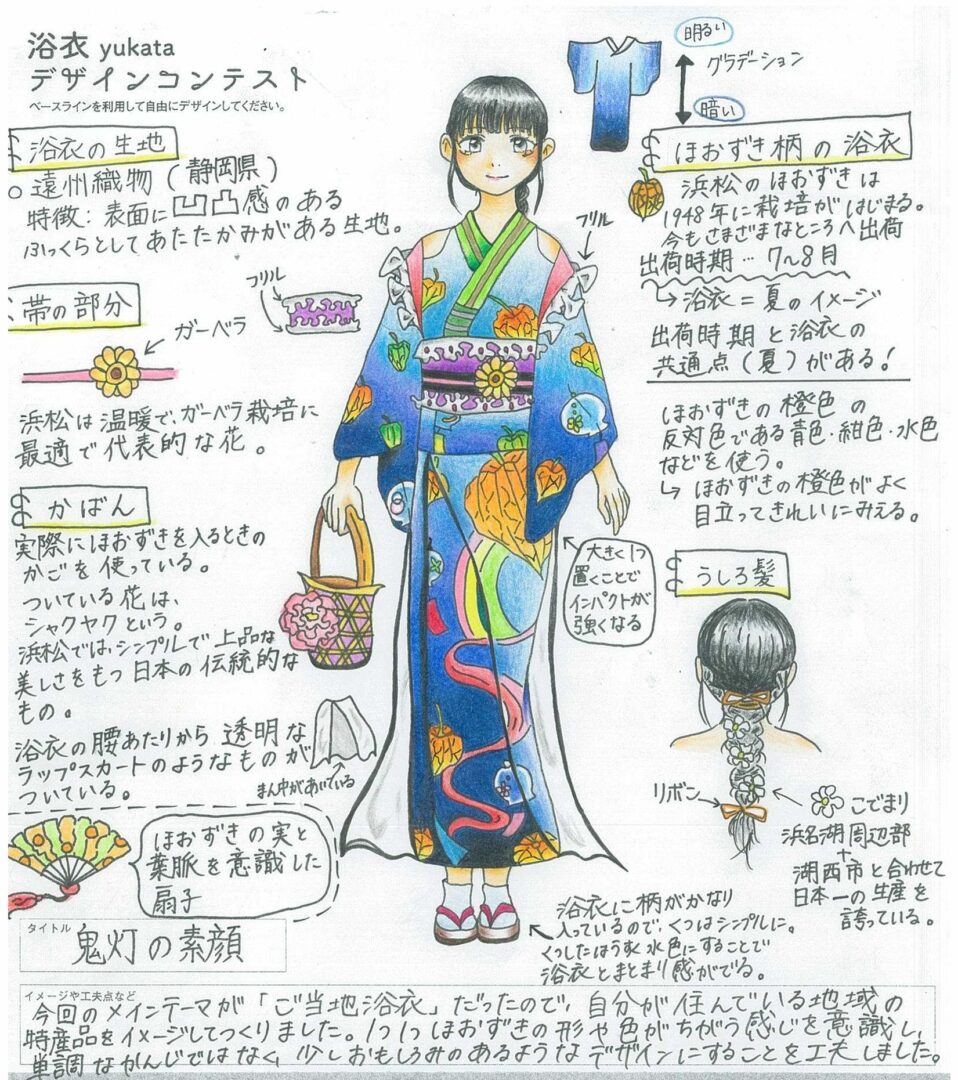 浴衣 yukata
デザインコンテスト
ベースラインを利用して自由にデザインしてください。
浴衣の生地
遠州織物(静岡県)
特徴:表面に凹凸感のある
ふっくらとしてあたたかみがある生地。
帯の部分
フリル
ガーベラ
浜松は温暖で、ガーベラ栽培に
最適で代表的な花。
かばん
実際にほおずきを入るときの
かごを使っている。
ついている花は、
シャクヤクという。
浜松では、シンプルで上品な
美しさをもつ日本の伝統的な
もの。
浴衣の腰あたりから透明な
ラップスカートのようなものが
ついている。
まん中があいている
ほおずきの実と
葉脈を意識した
扇子
明るい
グラデーション
暗い
フリル
ほおずき柄の浴衣
浜松のほおずきは
1948年に栽培がはじまる。
今もさまざまなところへ出荷
出荷時期…7~8月
↳浴衣=夏のイメージ
出荷時期と浴衣の
共通点(夏)がある!
ほおずきの橙色の
反対色である青色・紺色・水色
などを使う。
↳ほおずきの橙色がよく
目立ってきれいにみえる。
大きく1つ
置くことで
インパクトが
強くなる
うしろ髪
リボン
こでまり
浜名湖周辺部
+
湖西市と合わせて
日本一の生産を
誇っている。
浴衣に柄がかなり
入っているので、くつはシンプルに。
くつしたはうすく水色にすることで
浴衣とまとまり感がでる。
タイトル
鬼灯の素顔
イメージや工夫点など
今回のメインテーマが「ご当地浴衣」だったので、自分が住んでいる地域の
特産品をイメージしてつくりました。1つ1つほおずきの形や色がちがう感じを意識し、
単調なかんじではなく、少しおもしろみのあるようなデザインにすることを工夫しました。